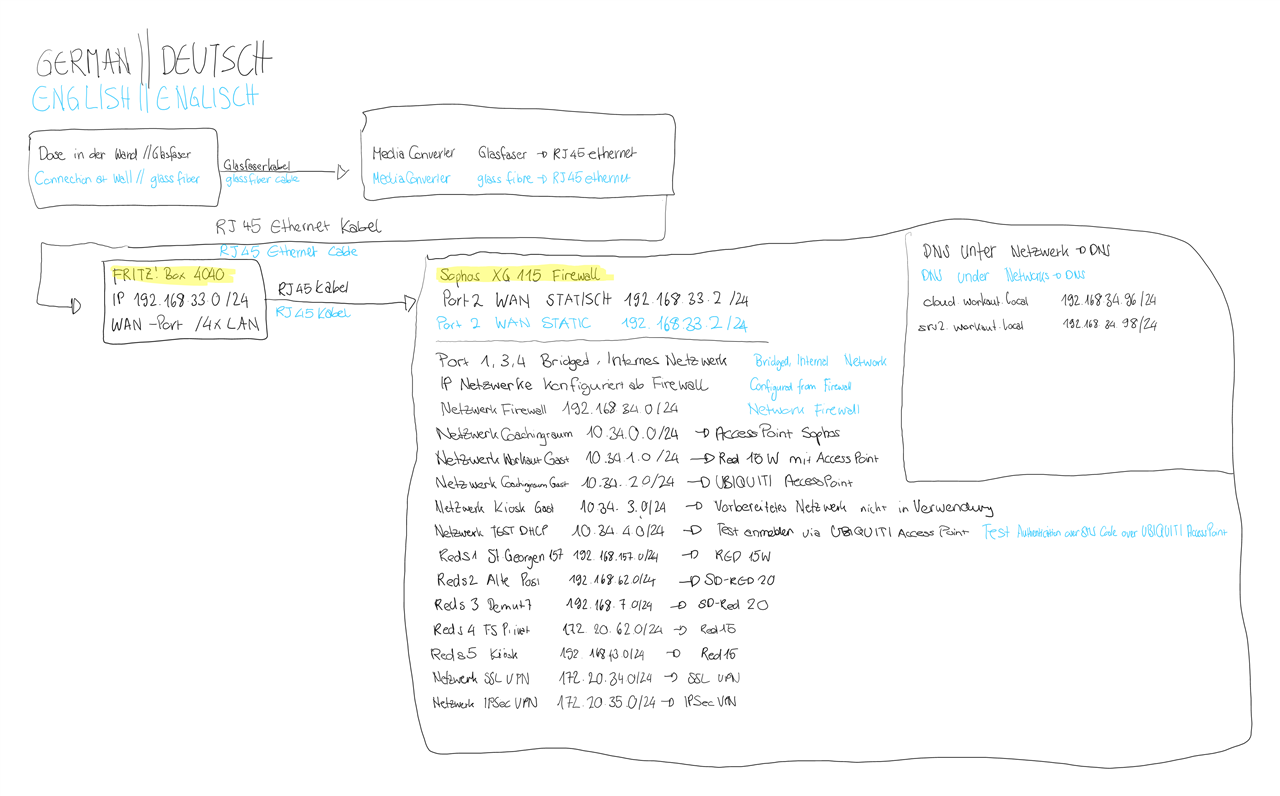 GERMAN || DEUTSCH
ENGLISH || ENGLISCH
Dose in der Wand // Glasfaser
Connection at Wall // glass fiber
Glasfaserkabel
glassfiber cable
Media Converter Glasfaser → RJ45 ethernet
MediaConverter glass fibre → RJ45 ethernet
RJ45 Ethernet Kabel
RJ45 Ethernet Cable
FRITZ! Box 4040
IP 192.168.33.0 /24
WAN-Port /4x LAN
RJ45 Kabel
RJ45 Kabel
Sophos XG 115 Firewall
Port 2 WAN STATISCH 192.168.33.2 /24
Port 2 WAN STATIC 192.168.33.2/24
Port 1,3,4 Bridged, Internes Netzwerk Bridged, Internal Network
IP Netzwerke konfiguriert ab Firewall Configured from Firewall
Netzwerk Firewall 192.168.34.0/24 Network Firewall
Netzwerk Coachingraum 10.34.0.0/24 → AccessPoint Sophos
Netzwerk Workaut Gast 10.34.1.0/24 → Red 15W mit AccessPoint
Netzwerk Coachingraum Gast 10.34.2.0/24 → UBIQUITI AccessPoint
Netzwerk Kiosk Gast 10.34.3.0/24 → Vorbereitetes Netzwerk nicht in Verwendung
Netzwerk TEST DHCP 10.34.4.0/24 → Test anmelden via UBIQUITI Access Point Test Authentication over SMS Code over UBIQUITI AccessPoint
Reds1 St Georgen 157 192.168.157.0/24 → RED 15W
Reds2 Alte Post 192.168.62.0/24 → SD-RED 20
Reds 3 Demut7 192.168.7.0/24 → SD-Red 20
Reds4 FS Privat 172.20.62.0/24 → Red15
Reds5 Kiosk → Red15
Netzwerk SSL VPN 172.20.34.0/24 → SSL VPN
Netzwerk IPSec VPN 172.20.35.0/24 → IPSec VPN
DNS Unter Netzwerk → DNS
DNS under Networks → DNS
cloud.workaut.local 192.168.34.96/24
srv2.workaut.local 192.168.34.98/24